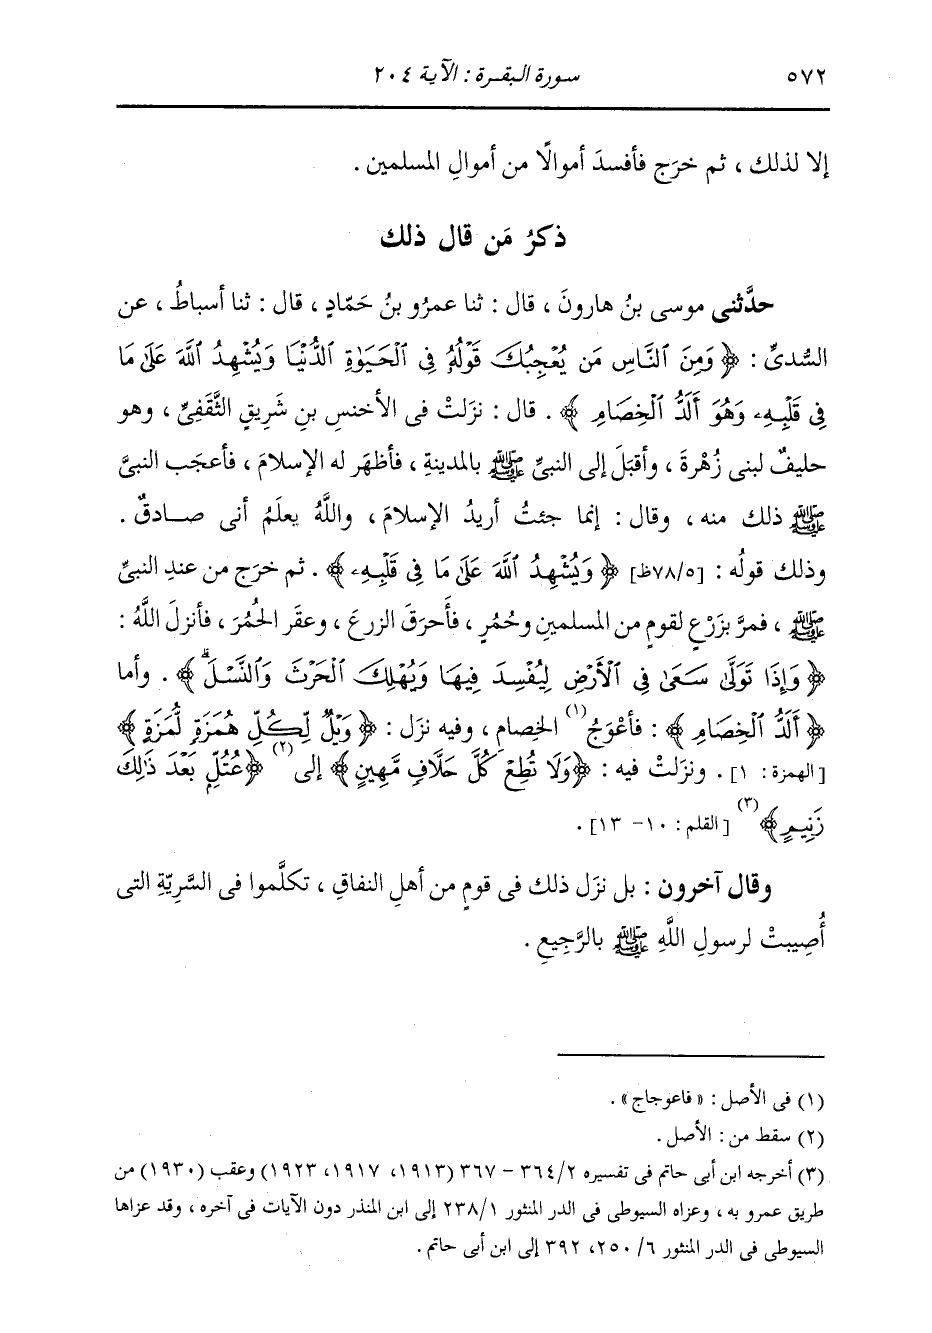 ٥٧٢ سورة البقرة : الآية ٢٠٤
إلا لذلك ، ثم خرَج فأفسدَ أموالًا من أموالِ المسلمين .
ذكرُ مَن قال ذلك
حدَّثنى موسى بنُ هارونَ ، قال : ثنا عمرُو بنُ حَمّادٍ ، قال : ثنا أسباطُ ، عن
السُّدىِّ : ﴿ وَمِنَ ٱلنَّاسِ مَن يُعْجِبُكَ قَوْلُهُۥ فِى ٱلْحَيَوٰةِ ٱلدُّنْيَا وَيُشْهِدُ ٱللَّهَ عَلَىٰ مَا
فِى قَلْبِهِۦ وَهُوَ أَلَدُّ ٱلْخِصَامِ ﴾ . قال : نزَلتْ فى الأخنسِ بنِ شَرِيقٍ الثَّقَفِىِّ ، وهو
حليفٌ لبنى زُهْرةَ ، وأقبَلَ إلى النبىِّ ﷺ بالمدينةِ ، فأظهَر له الإسلامَ ، فأعجَب النبىَّ
ﷺ ذلك منه ، وقال : إنما جئتُ أريدُ الإسلامَ ، واللَّهُ يعلَمُ أنى صـادقٌ .
وذلك قولُه : [٧٨/٥ظ] ﴿ وَيُشْهِدُ ٱللَّهَ عَلَىٰ مَا فِى قَلْبِهِۦ ﴾ . ثم خرَج من عندِ النبىِّ
ﷺ ، فمرَّ بزَرْعٍ لقومٍ من المسلمين وحُمُرٍ ، فأَحرَق الزرعَ ، وعقَر الحُمُرَ ، فأنزلَ اللَّهُ :
﴿ وَإِذَا تَوَلَّىٰ سَعَىٰ فِى ٱلْأَرْضِ لِيُفْسِدَ فِيهَا وَيُهْلِكَ ٱلْحَرْثَ وَٱلنَّسْلَۗ ﴾ . وأما
﴿ أَلَدُّ ٱلْخِصَامِ ﴾ : فأعْوَجُ(١) الخصامِ ، وفيه نزَل : ﴿ وَيْلٌ لِّكُلِّ هُمَزَةٍ لُّمَزَةٍ ﴾
[الهمزة : ١] . ونزَلتْ فيه : ﴿وَلَا تُطِعْ كُلَّ حَلَّافٍ مَّهِينٍ﴾ إلى(٢) ﴿عُتُلٍّ بَعْدَ ذَٰلِكَ
زَنِيمٍ﴾(٣) [القلم : ١٠- ١٣] .
وقال آخرون : بل نزَل ذلك فى قومٍ من أهلِ النفاقِ ، تكلَّموا فى السَّرِيّةِ التى
أُصِيبتْ لرسولِ اللَّهِ ﷺ بالرَّجيعِ .
(١) فى الأصل : « فاعوجاج» .
(٢) سقط من : الأصل .
(٣) أخرجه ابن أبى حاتم فى تفسيره ٣٦٤/٢ - ٣٦٧ (١٩١٣، ١٩١٧، ١٩٢٣) وعقب (١٩٣٠) من
طريق عمرو به ، وعزاه السيوطى فى الدر المنثور ٢٣٨/١ إلى ابن المنذر دون الآيات فى آخره ، وقد عزاها
السيوطى فى الدر المنثور ٦/ ٢٥٠، ٣٩٢ إلى ابن أبى حاتم .